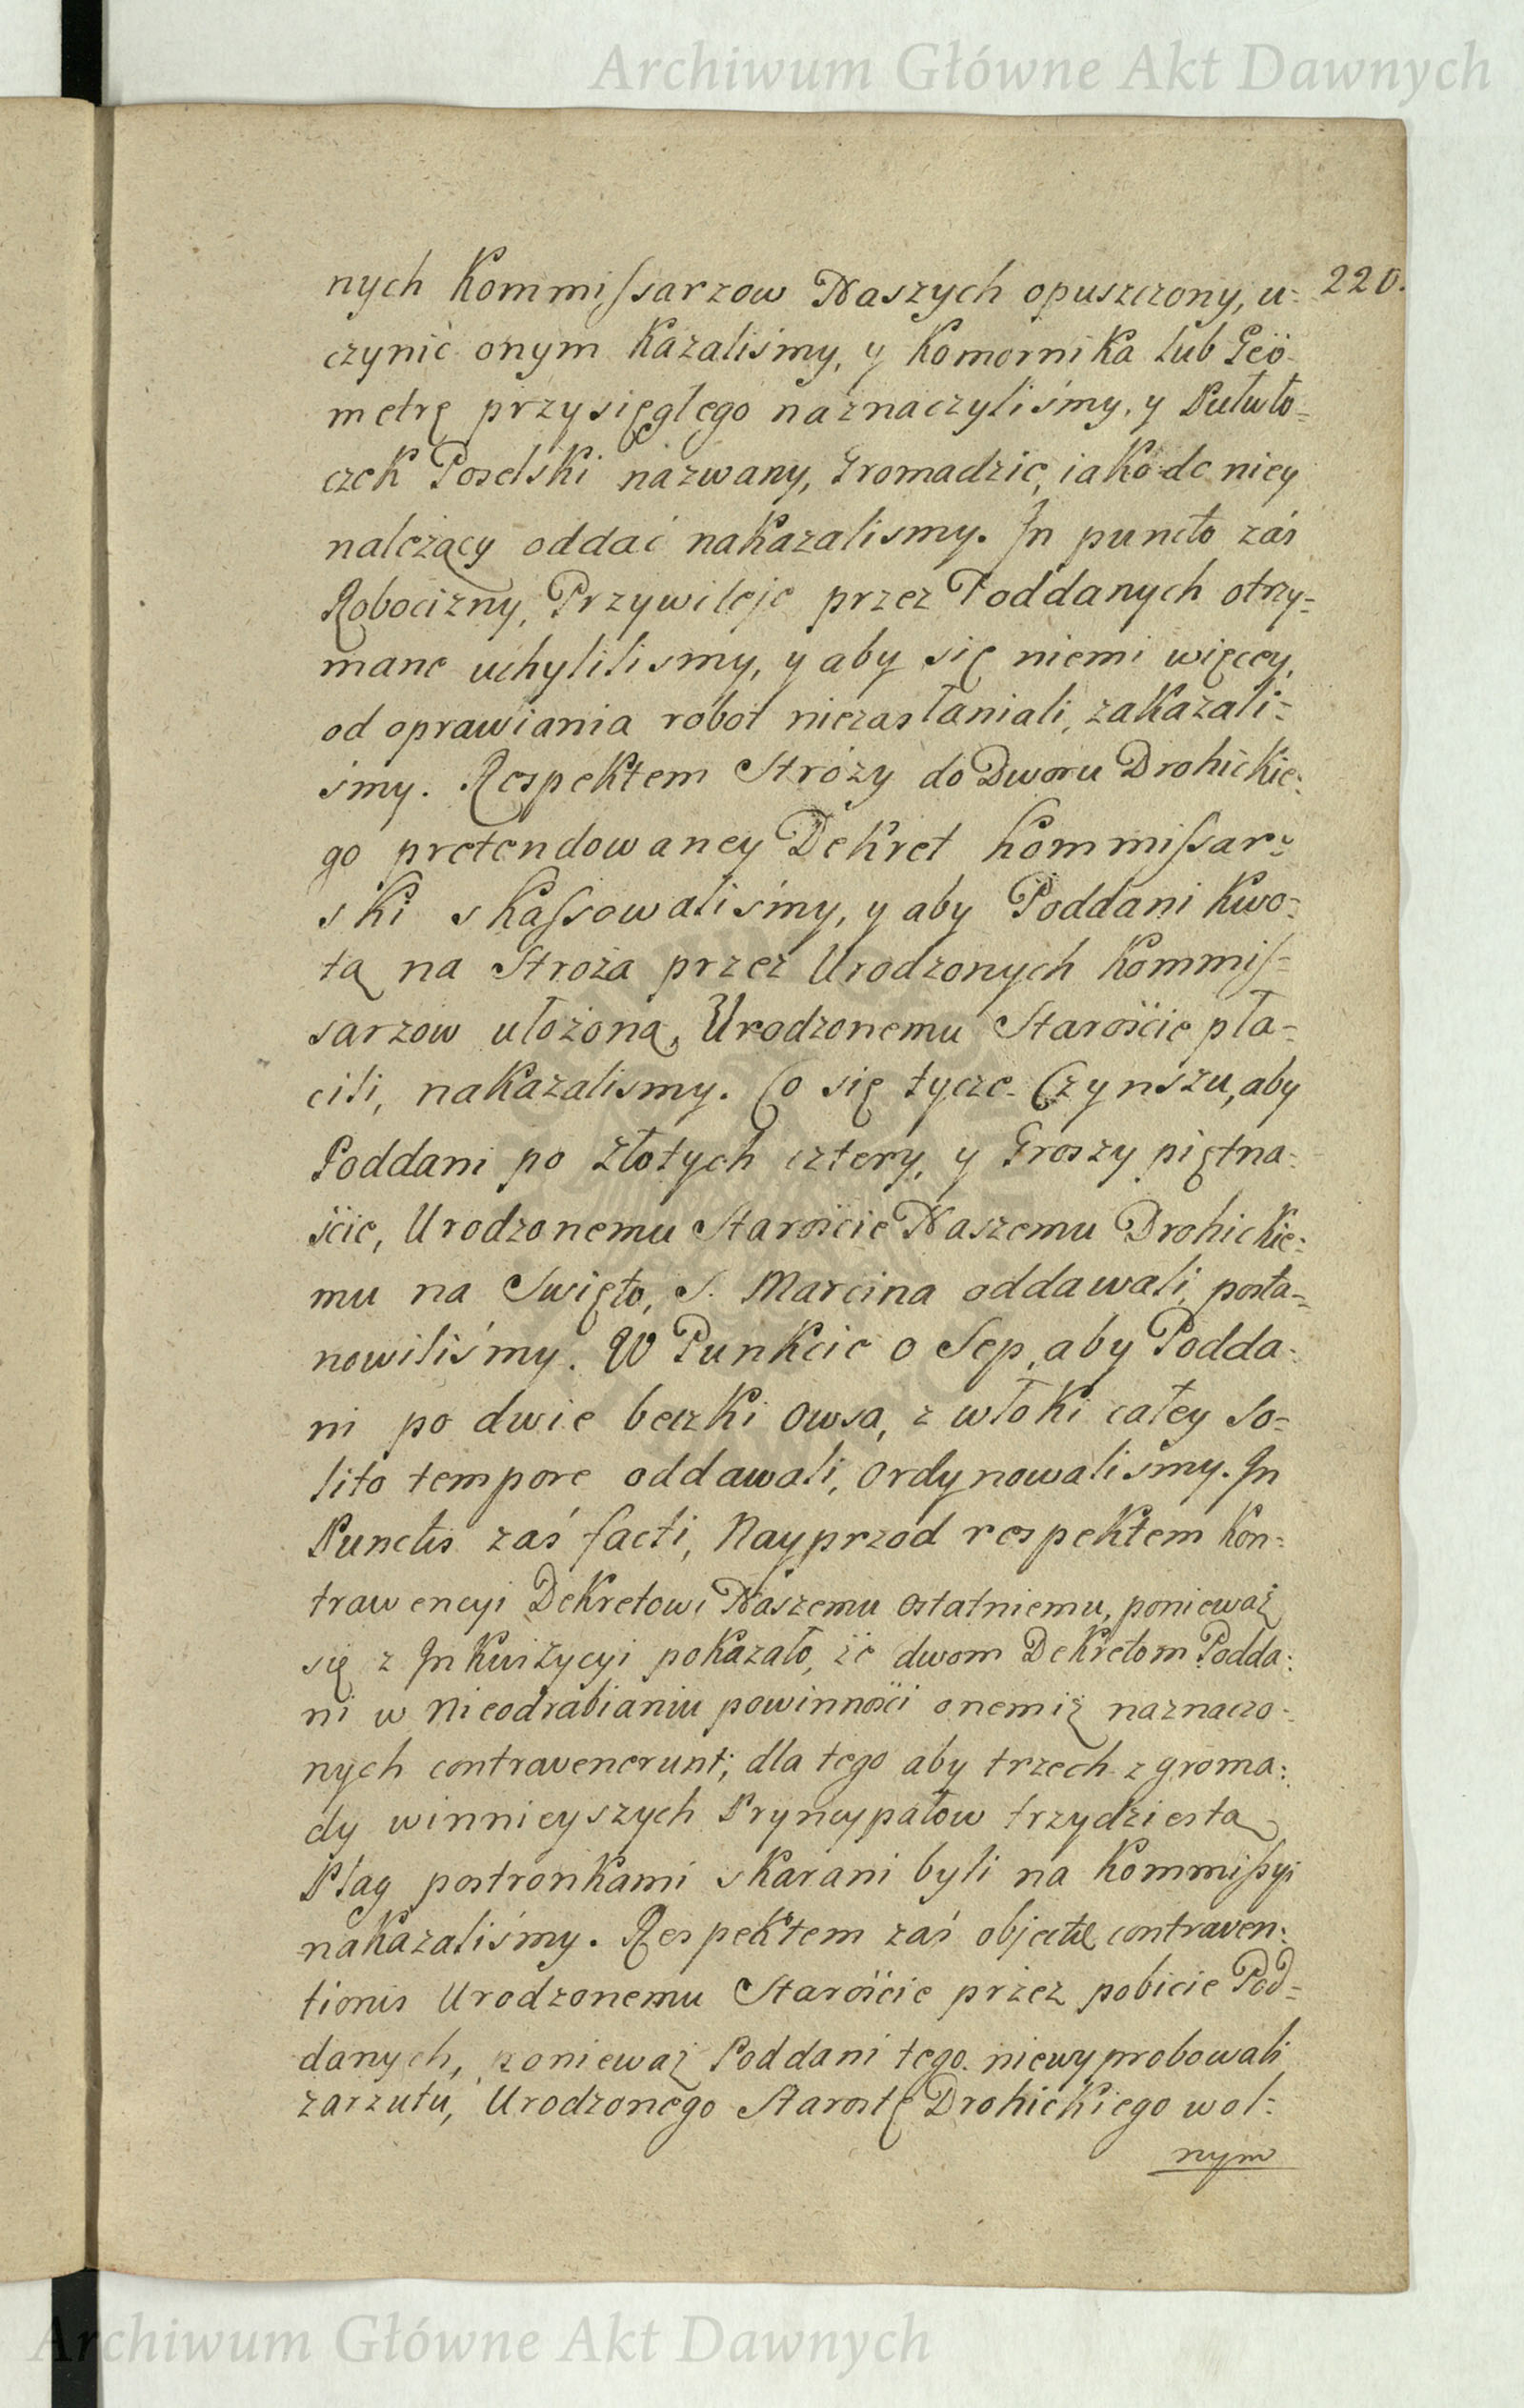 Archiwum Główne Akt Dawnych
220.
nych Kommissarzow Naszych opuszczony, u-
czynić onym kazaliśmy, y Komornika lub Geo-
metrę przysięgłego naznaczyliśmy, y Putwło-
czek Poselski nazwany, Gromadzie, iako do niey
należący oddać nakazalismy. In puncto zaś
Robocizny, Przywileje przez Poddanych otrzy-
mane uchylilismy, y aby się niemi więcey,
od oprawiania robot niezasłaniali, zakazali-
śmy. Respektem Stróży do Dworu Drohickie-
go pretendowaney Dekret Kommissar-
ski skassowaliśmy, y aby Poddani kwo-
tą na Stroża przez Urodzonych Kommis-
sarzow ułożoną, Urodzonemu Starościе pła-
cili, nakazalismy. Co się tycze Czynszu, aby
Poddani po złotych cztery, y Groszy piętna-
ście, Urodzonemu Starościе Naszemu Drohickie-
mu na Swięto, S. Marcina oddawali, posta-
nowiliśmy. W Punkcie o Sep, aby Podda-
ni po dwie beczki Owsa, z włoki całey so-
lito tempore oddawali, ordynowaliśmy. In
Punctis zaś facti, Nayprzod respektem Kon-
trawencyi Dekretowi Naszemu ostatniemu, ponieważ
się z Inkwizycyi pokazało, że dwom Dekretom Podda-
ni w nieodrabianiu powinności onemiż naznaczo-
nych contravenerunt; dla tego aby trzech z groma-
dy winnieyszych Pryncypałow trzydziestą
Plag postronkami skarani byli na Kommissyi
nakazaliśmy. Respektem zaś objectæ contraven-
tionis Urodzonemu Starościе przez pobicie Pod-
danych, ponieważ Poddani tego niewyprobowali
zarzutu, Urodzonego Starostę Drohickiego wol-
nym
Archiwum Główne Akt Dawnych